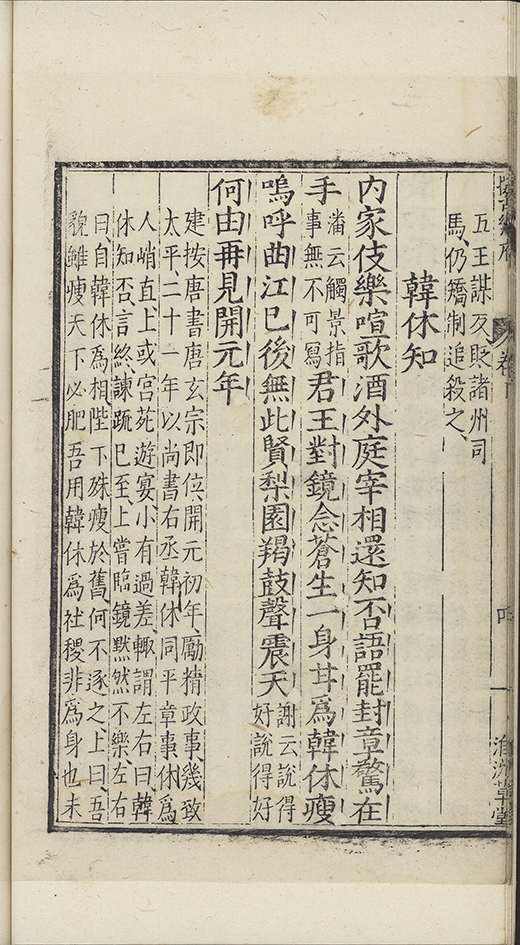 五王謀反貶諸州司
馬、仍矯制追殺之、
韓休知
內家伎樂喧歌酒外庭宰相還知否語罷封章驚在
手潘云觸景指事無不可寫君王對鏡念蒼生一身甘爲韓休瘦
嗚呼曲江已後無此賢梨園羯鼓聲震天謝云說得好說得好
何由再見開元年
建按唐書唐玄宗即位、開元初年、勵精政事、幾致
太平、二十一年以尚書右丞韓休同平章事、休爲
人峭直、上或宮苑遊宴、小有過差、輒謂左右曰、韓
休知否、言終、諫疏已至、上嘗臨鏡默然不樂、左右
曰、自韓休爲相、陛下殊瘦於舊、何不逐之、上曰、吾
貌雖瘦、天下必肥、吾用韓休爲社稷、非爲身也、未